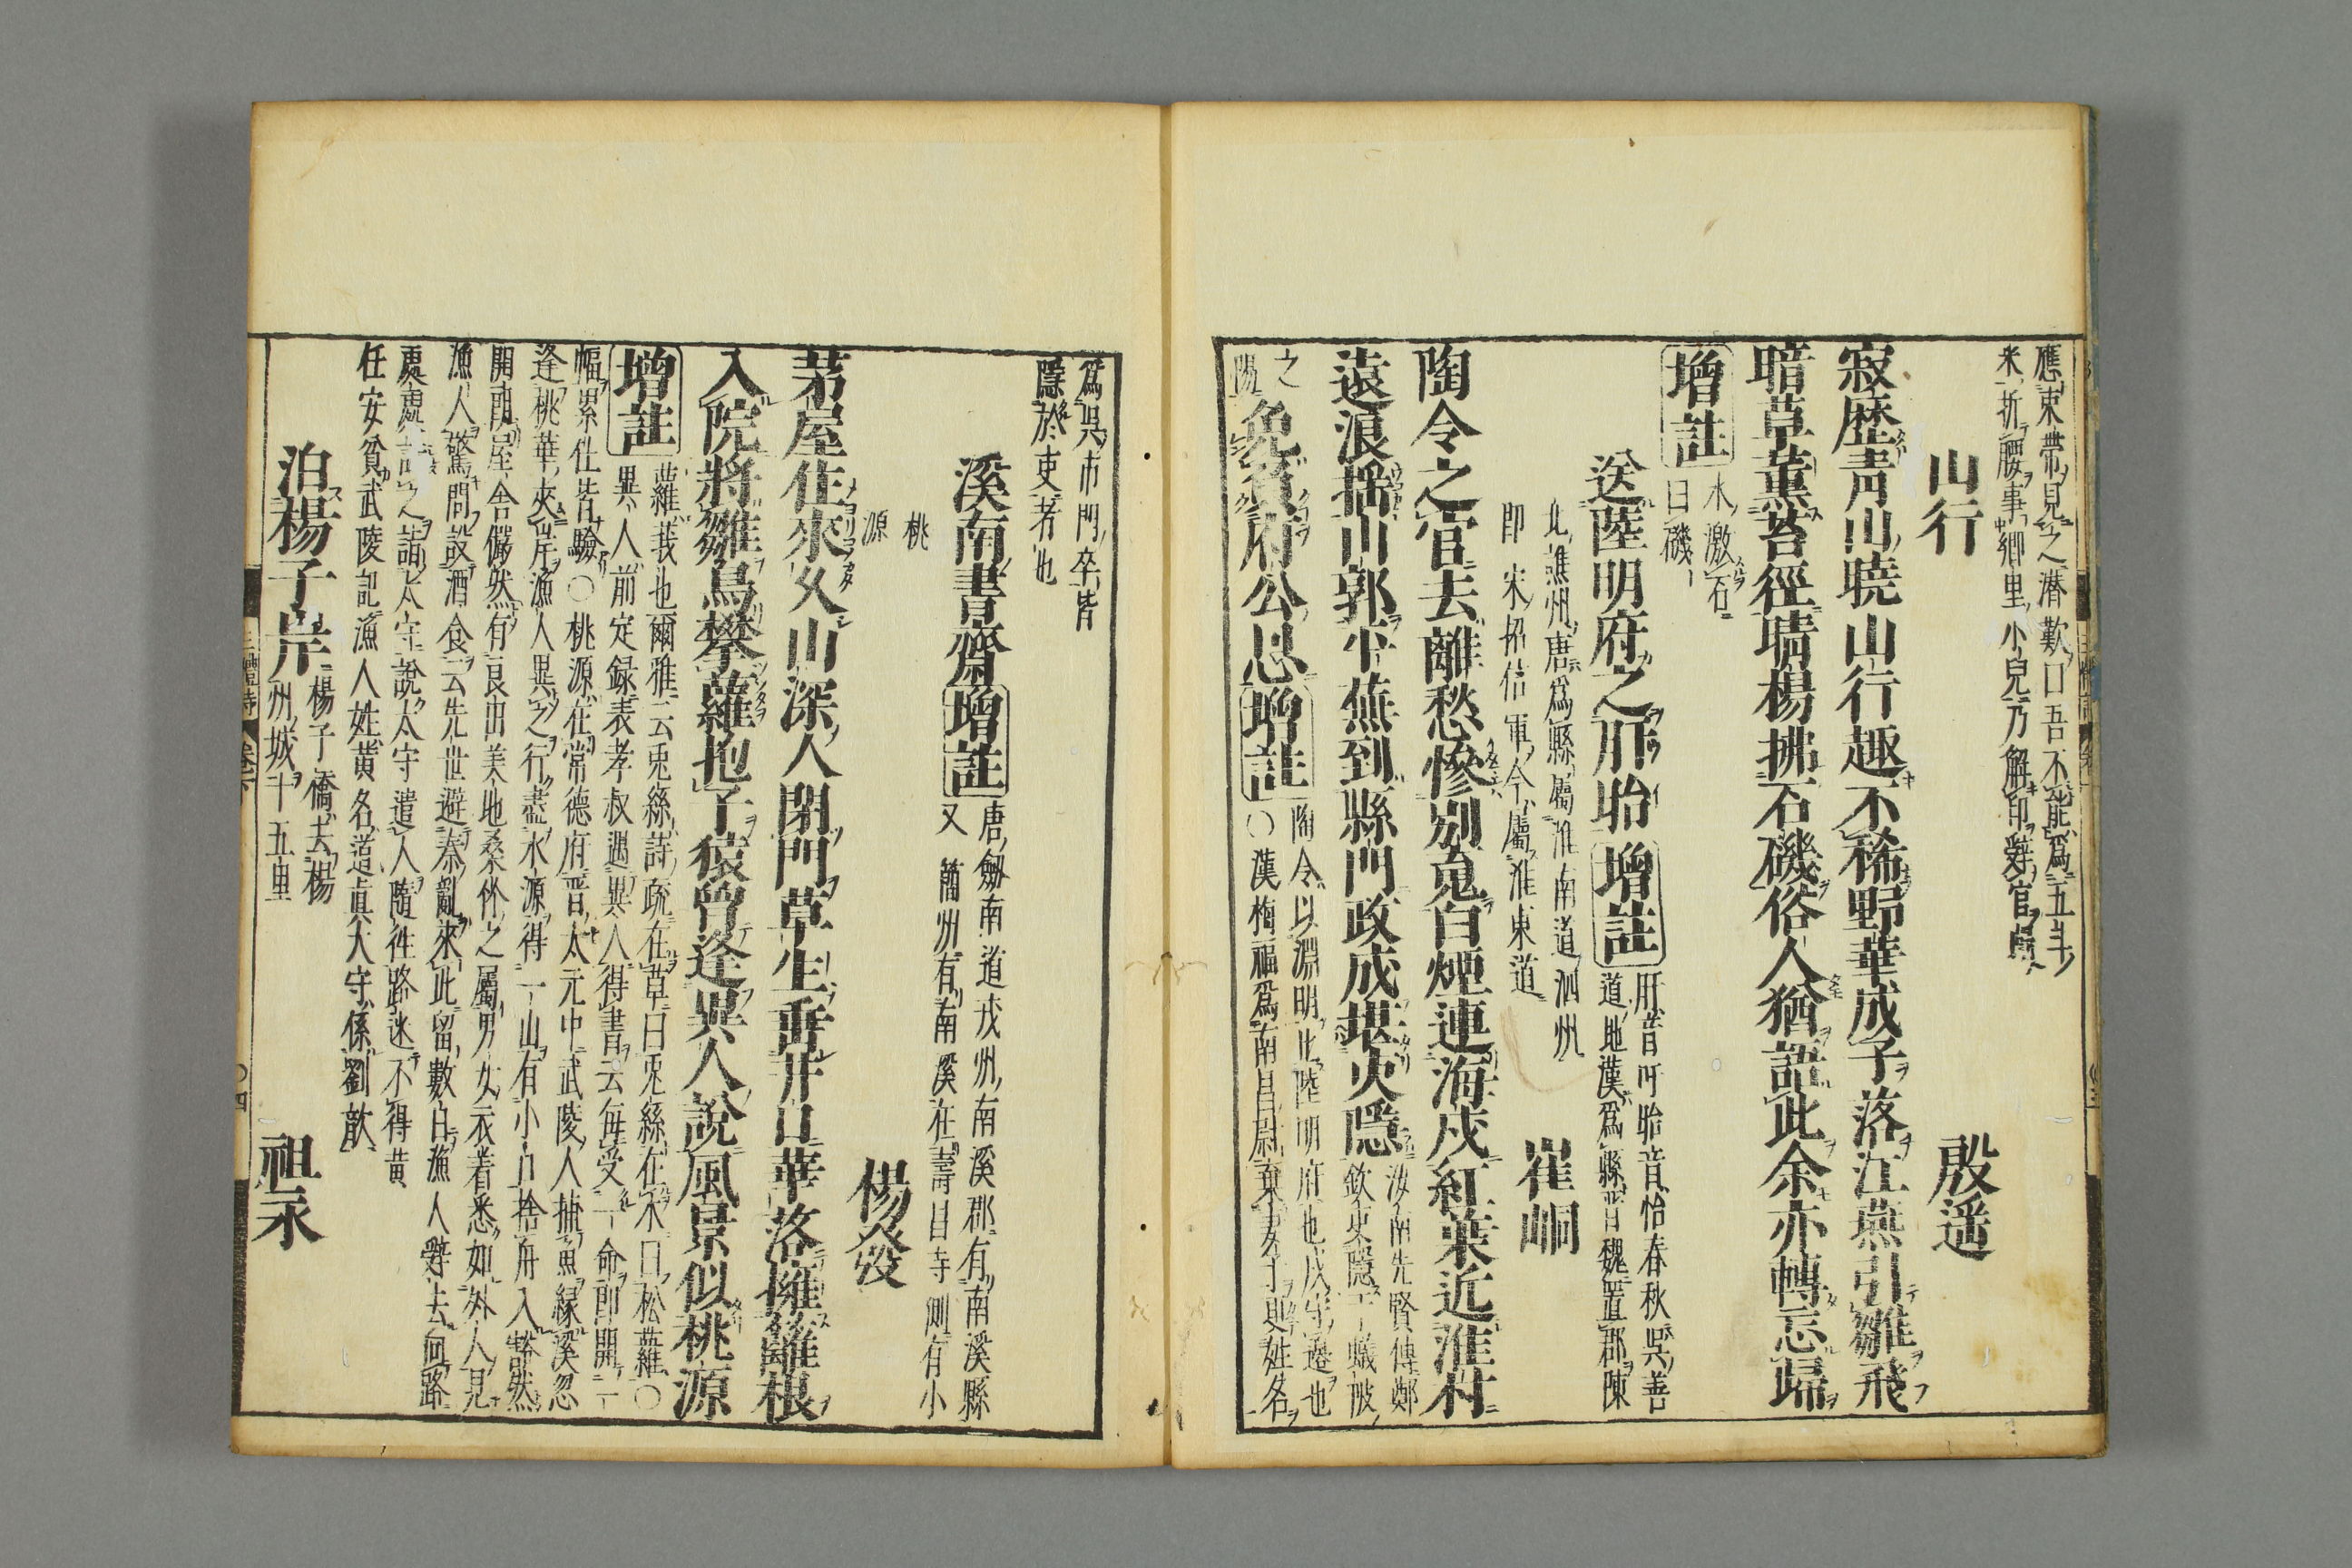 應束帶見之潛歎口吾不能為五斗
米折腰事鄉里小兒乃解印綬官去
山行 殷遥
寂歴青山曉山行趣不稀野華成子落江燕引雛飛
暗草薰苔徑晴楊拂石磯俗人猶語此余亦轉忘歸
增註
水激石
曰磯
送陸明府之盱眙
增註
盱音吁眙音怡春秋吳善
道地漢為縣晉魏置郡陳
北譙州唐為縣屬淮南道泗州
即宋招信軍今屬淮東道
崔峒
陶令之官去離愁慘別䰟白煙連海戍紅葉近淮村
遠浪揺山郭平蕪到縣門政成堪吏隱
汝南先賢傳鄭
欽吏隱于蟻陂
之
陽
免負府公恩
增註
陶令以淵明比陸明府也戍守邊也
○漢梅福為南昌尉棄妻子則姓名
為吳市門卒皆
隱於吏者也
溪南書齋
增註
唐劔南道戎州南溪郡有南溪縣
又簡州有南溪在壽昌寺側有小
桃
源
楊發
茅屋住來久山深人閉門草生垂井口華落擁籬根
入院將雛鳥攀蘿抱子猿曾逢異人說風景似桃源
增註
蘿莪也爾雅云兎絲詩疏在草曰兎絲在木曰松蘿○
異人前定録表孝叔遇異人得書云每受一命即開一
幅累仕皆驗○桃源在常德府晉太元中武陵人捕魚緣溪忽
逢桃華夾岸漁人異之行盡水源得一山有小口捨舟入豁然
開朗屋舍儼然有良田美地桑竹之屬男女衣着悉如外人見
漁人驚問設酒食云先世避秦亂來此留數日漁人辭去向路
處處誌之詣太守說太守遣人隨往路迷不得黄
任安貧武陵記漁人姓黄名道真大守係劉歆
泊楊子岸
楊子橋去楊
州城十五里
祖永